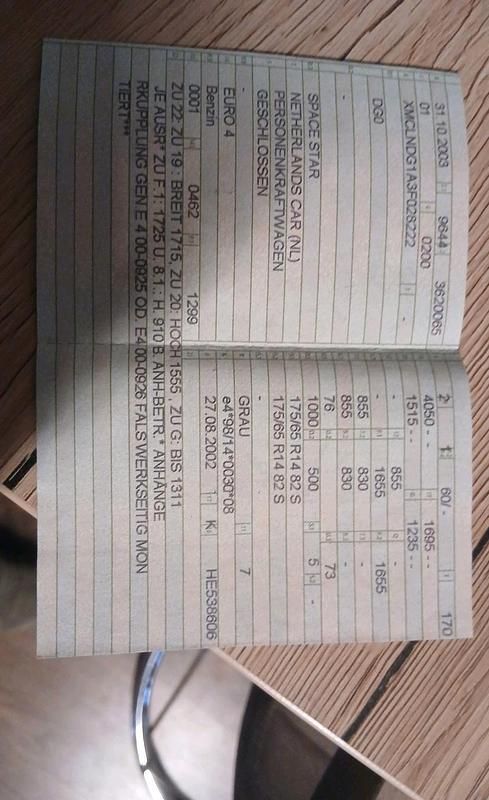 31.10.2003 9644 3620065
01 0200
XMCLNDG1A3F028222 -
DG0
-
SPACE STAR
NETHERLANDS CAR (NL)
PERSONENKRAFTWAGEN
GESCHLOSSEN
-
EURO 4
Benzin
0001 0462 1299
2 1 60/- 170
4050 - - 1695 - -
1515 - - 1235 - -
- 855 -
- 1655 1655
855 830 -
855 830 -
76 - 73
1000 500 5 -
175/65 R14 82 S
175/65 R14 82 S
-
GRAU 7
e4*98/14*0030*08
27.08.2002 K HE538606
ZU 22: ZU 19 : BREIT 1715, ZU 20: HOCH 1555 , ZU G: BIS 1311
JE AUSR* ZU F.1: 1725 U. 8.1.: H. 910 B. ANH-BETR.* ANHÄNGE
RKUPPLUNG GEN E 4 00-0925 OD. E4 00-0926 FALS WERKSEITIG MON
TIERT**